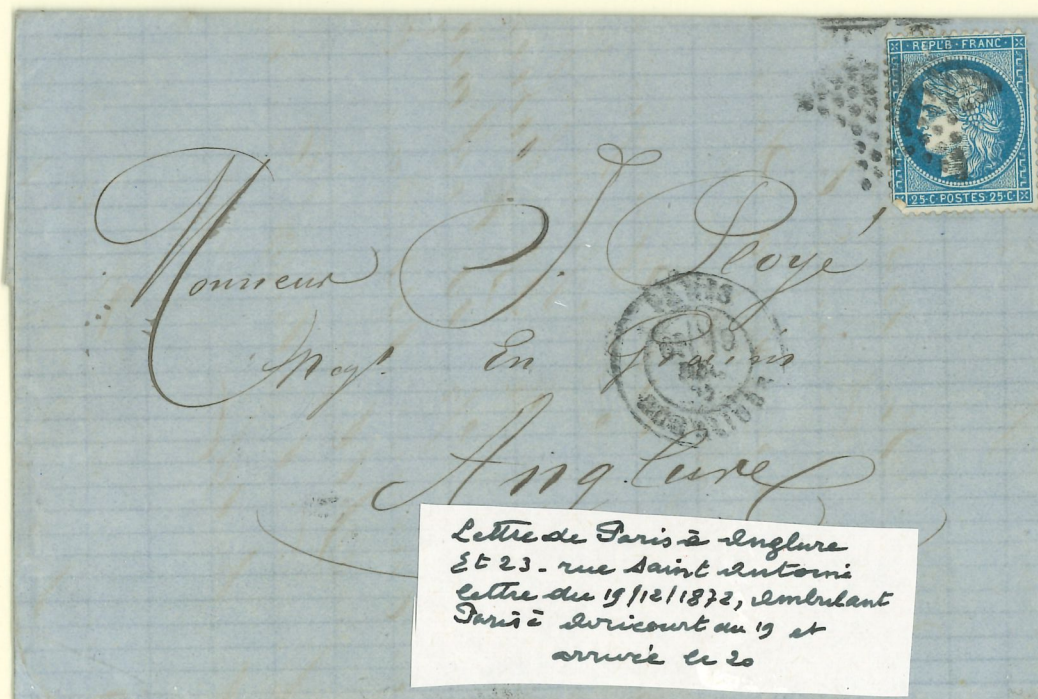 REPUB · FRANC ·
25·C·POSTES·25·C
Monsieur J. Ployé
Negt. En Grains
PARIS
DEC.
Anglure
Lettre de Paris à Anglure
Et 23 - rue Saint Antoine
lettre du 19/12/1872, Ambulant
Paris à Avricourt du 19 et
arrivée le 20